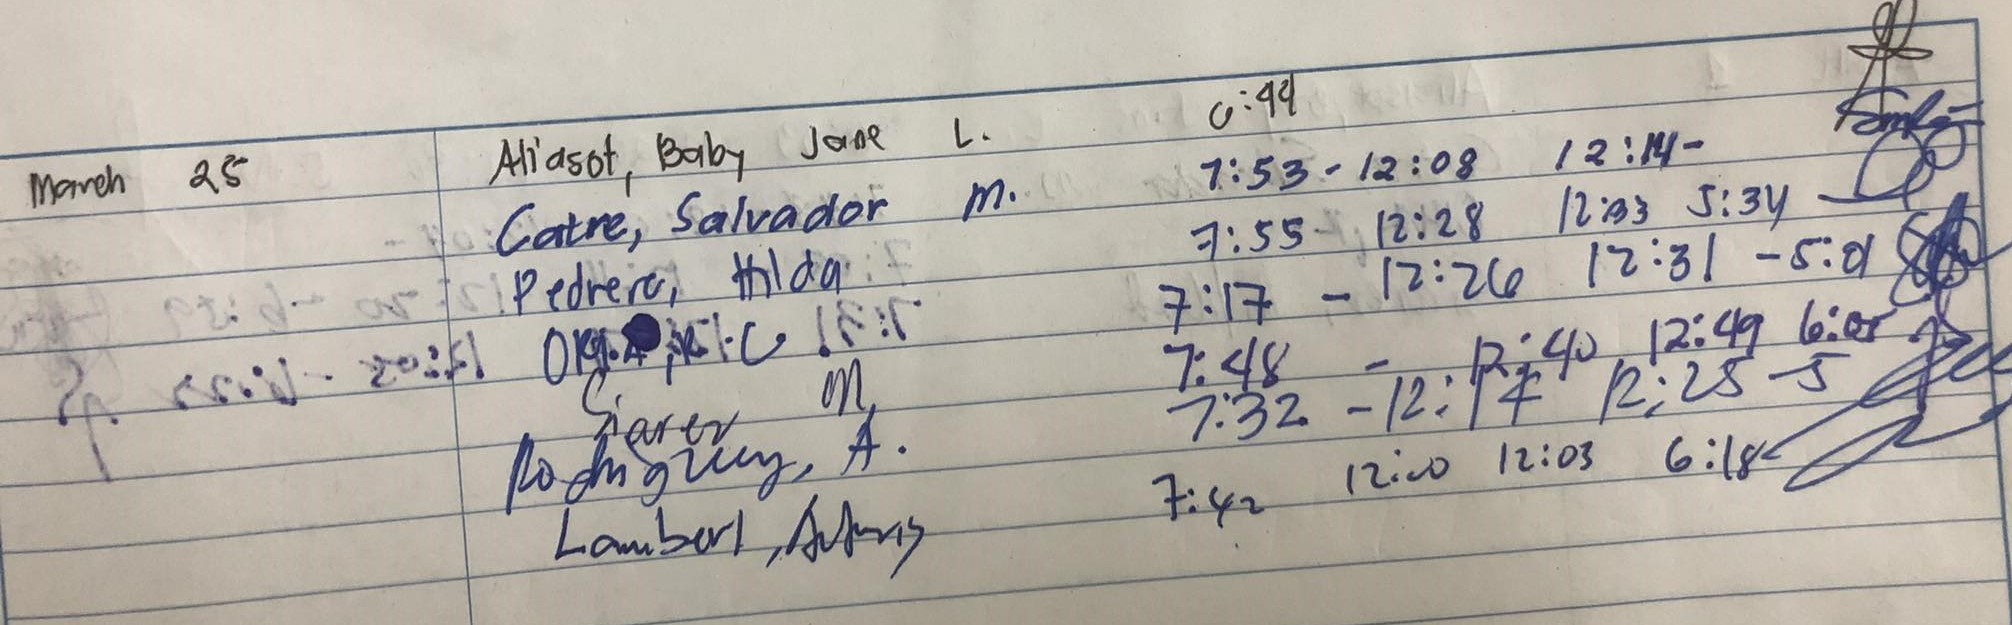 March 25 Aliasot, Baby Jane L. 6:44
Catre, Salvador M. 7:53 - 12:08 12:14 -
Pedrero, Hilda 7:55 - 12:28 12:33 5:34
7:17 - 12:26 12:31 - 5:01
Siarez M. 7:48 - 12:40 12:49 6:05
Rodriguez, A. 7:32 - 12:17 12:25 - 5
Lambert, 7:42 12:00 12:03 6:18